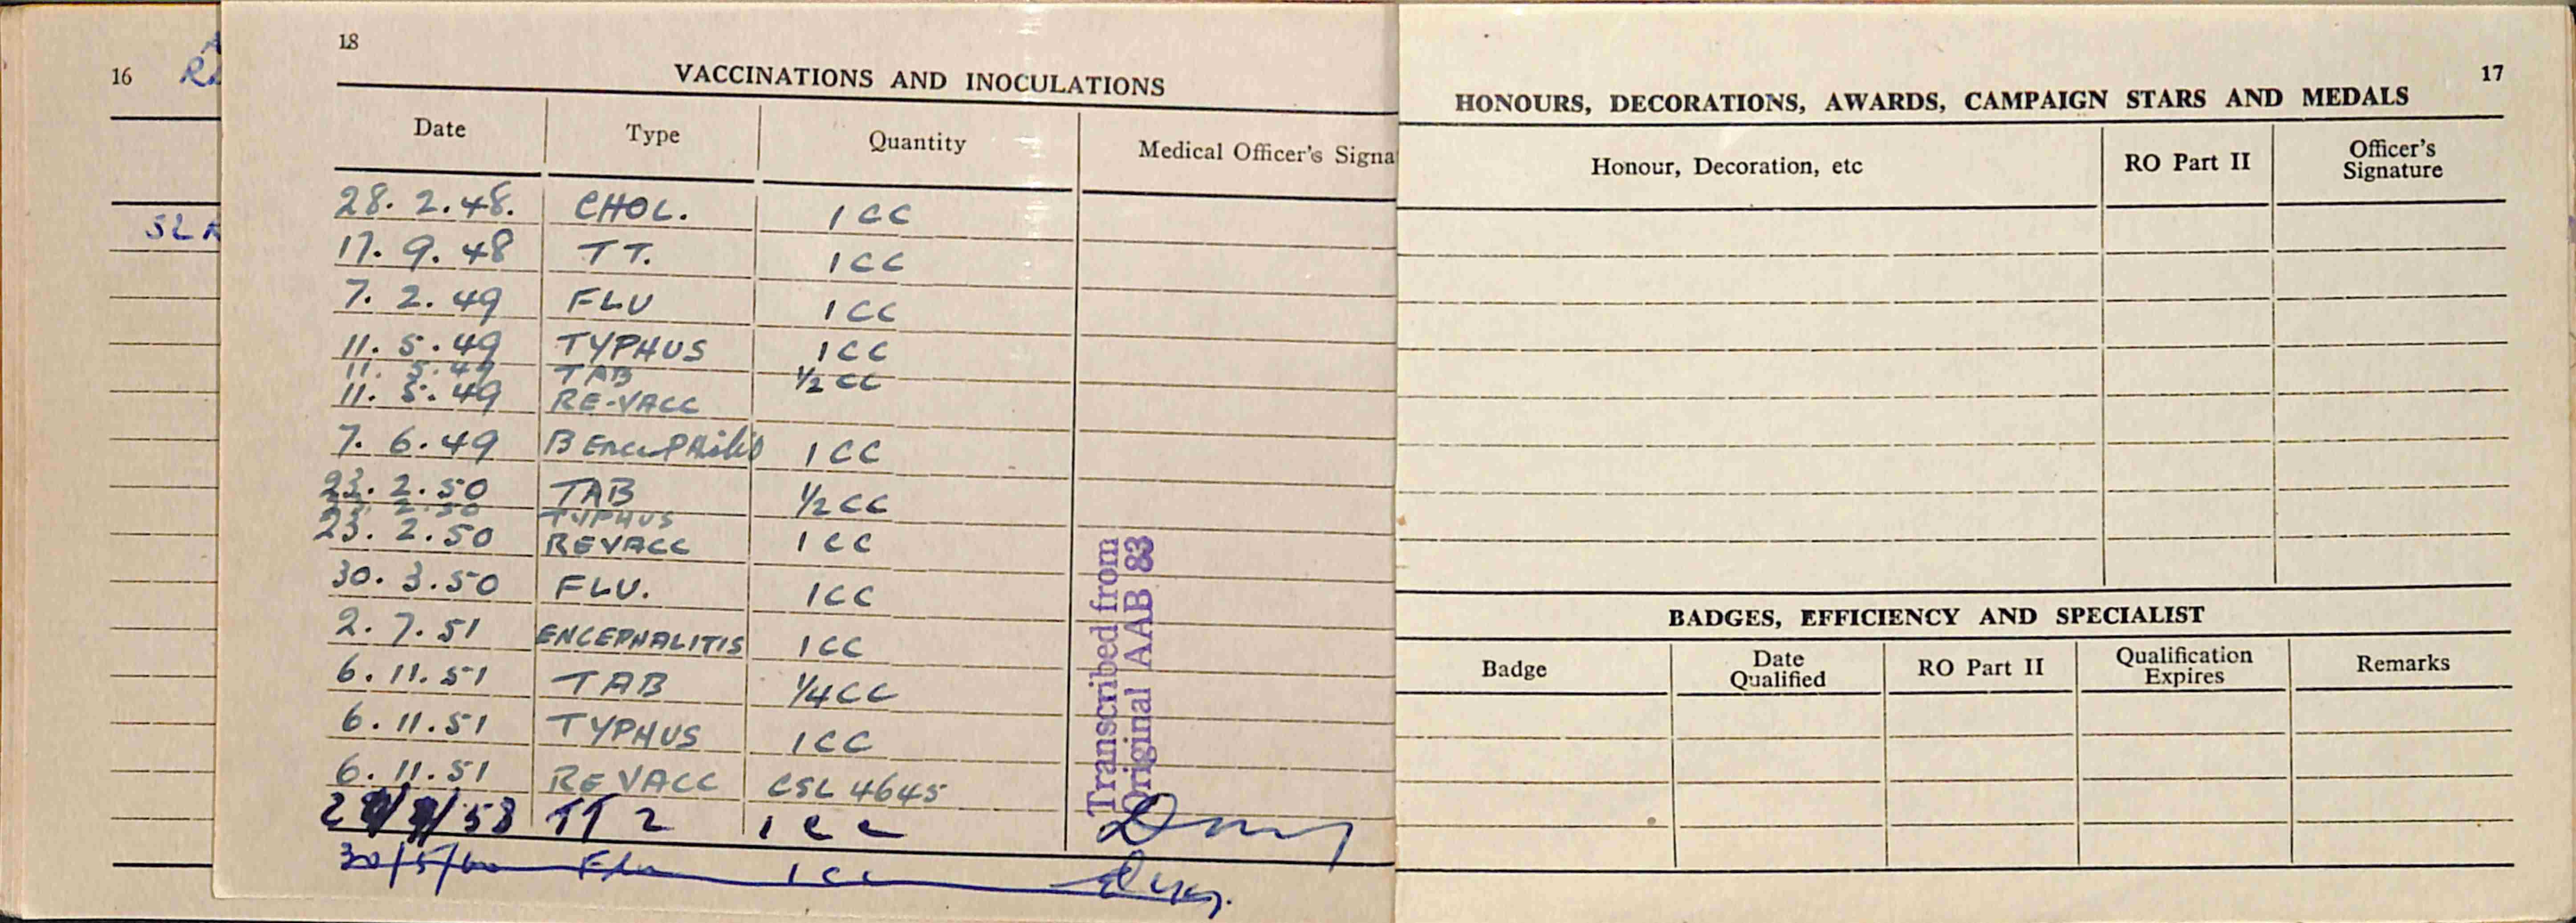 16
SL
18
VACCINATIONS AND INOCULATIONS
Date Type Quantity Medical Officer's Signa
28. 2. 48. CHOL. 1 CC
17. 9. 48 TT. 1 CC
7. 2. 49 FLU 1 CC
11. 5. 49 TYPHUS 1 CC
11. 5. 49 TAB 1/2 CC
11. 5. 49 RE-VACC
7. 6. 49 B 1 CC
23. 2. 50 TAB 1/2 CC
23. 2. 50 TYPHUS
23. 2. 50 REVACC 1 CC
30. 3. 50 FLU. 1 CC
2. 7. 51 ENCEPHALITIS 1 CC
6. 11. 51 TAB 1/4 CC
6. 11. 51 TYPHUS 1 CC
6. 11. 51 REVACC CSL 4645
TT 2 1 CC
30/5/60 Flu 1 CC
Transcribed from
Original AAB 83
17
HONOURS, DECORATIONS, AWARDS, CAMPAIGN STARS AND MEDALS
Honour, Decoration, etc RO Part II Officer's Signature
BADGES, EFFICIENCY AND SPECIALIST
Badge Date Qualified RO Part II Qualification Expires Remarks